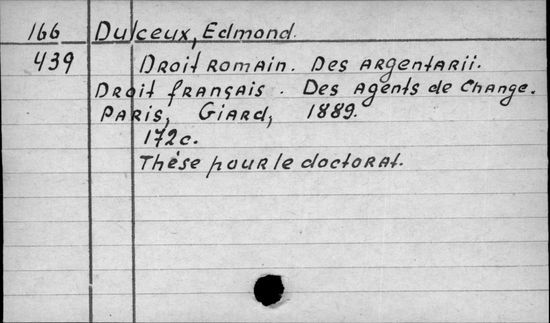 166 Dulceux, Edmond.
439 Droit romain. Des argentarii.
Droit français. Des agents de change.
Paris, Giard, 1889.
172c.
Thèse pour le doctorat.